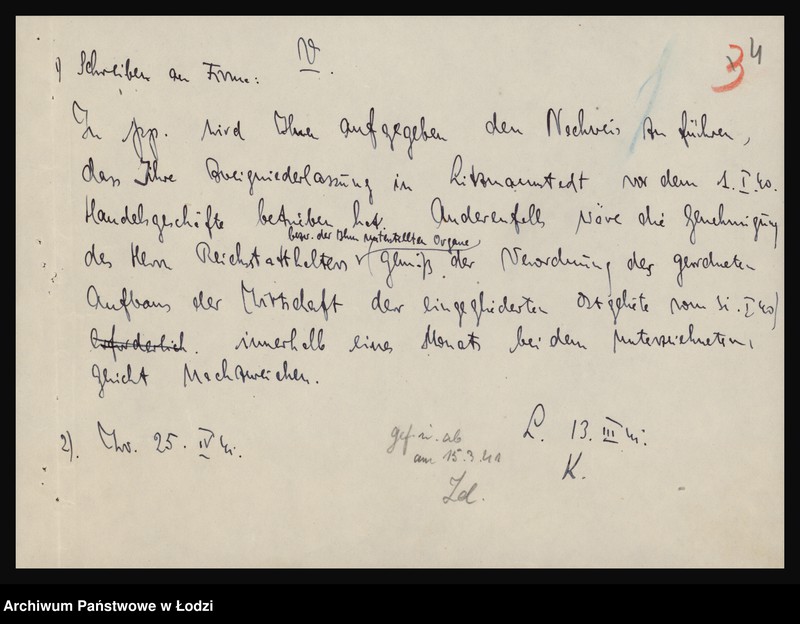 V.
34
1) Schreiben an Firma:
In pp. wird Ihnen aufgegeben den Nachweis zu führen,
dass Ihre Zweigniederlassung in Litzmannstadt vor dem 1. I. 40.
Handelsgeschäfte betrieben hat. Anderenfalls wäre die Genehmigung
bezw. der Ihm unterstellten Organe
des Herrn Reichsstatthalters gemäß der Verordnung des geordneten
Aufbaus der Wirtschaft der eingegliederten Ostgebiete vom I 40)
erforderlich. innerhalb eines Monats bei dem unterzeichneten
Gericht nachzureichen.
2). 25. IV
gef. u. ab
am 15.3.41
L. 13. III
K.
Archiwum Państwowe w Łodzi